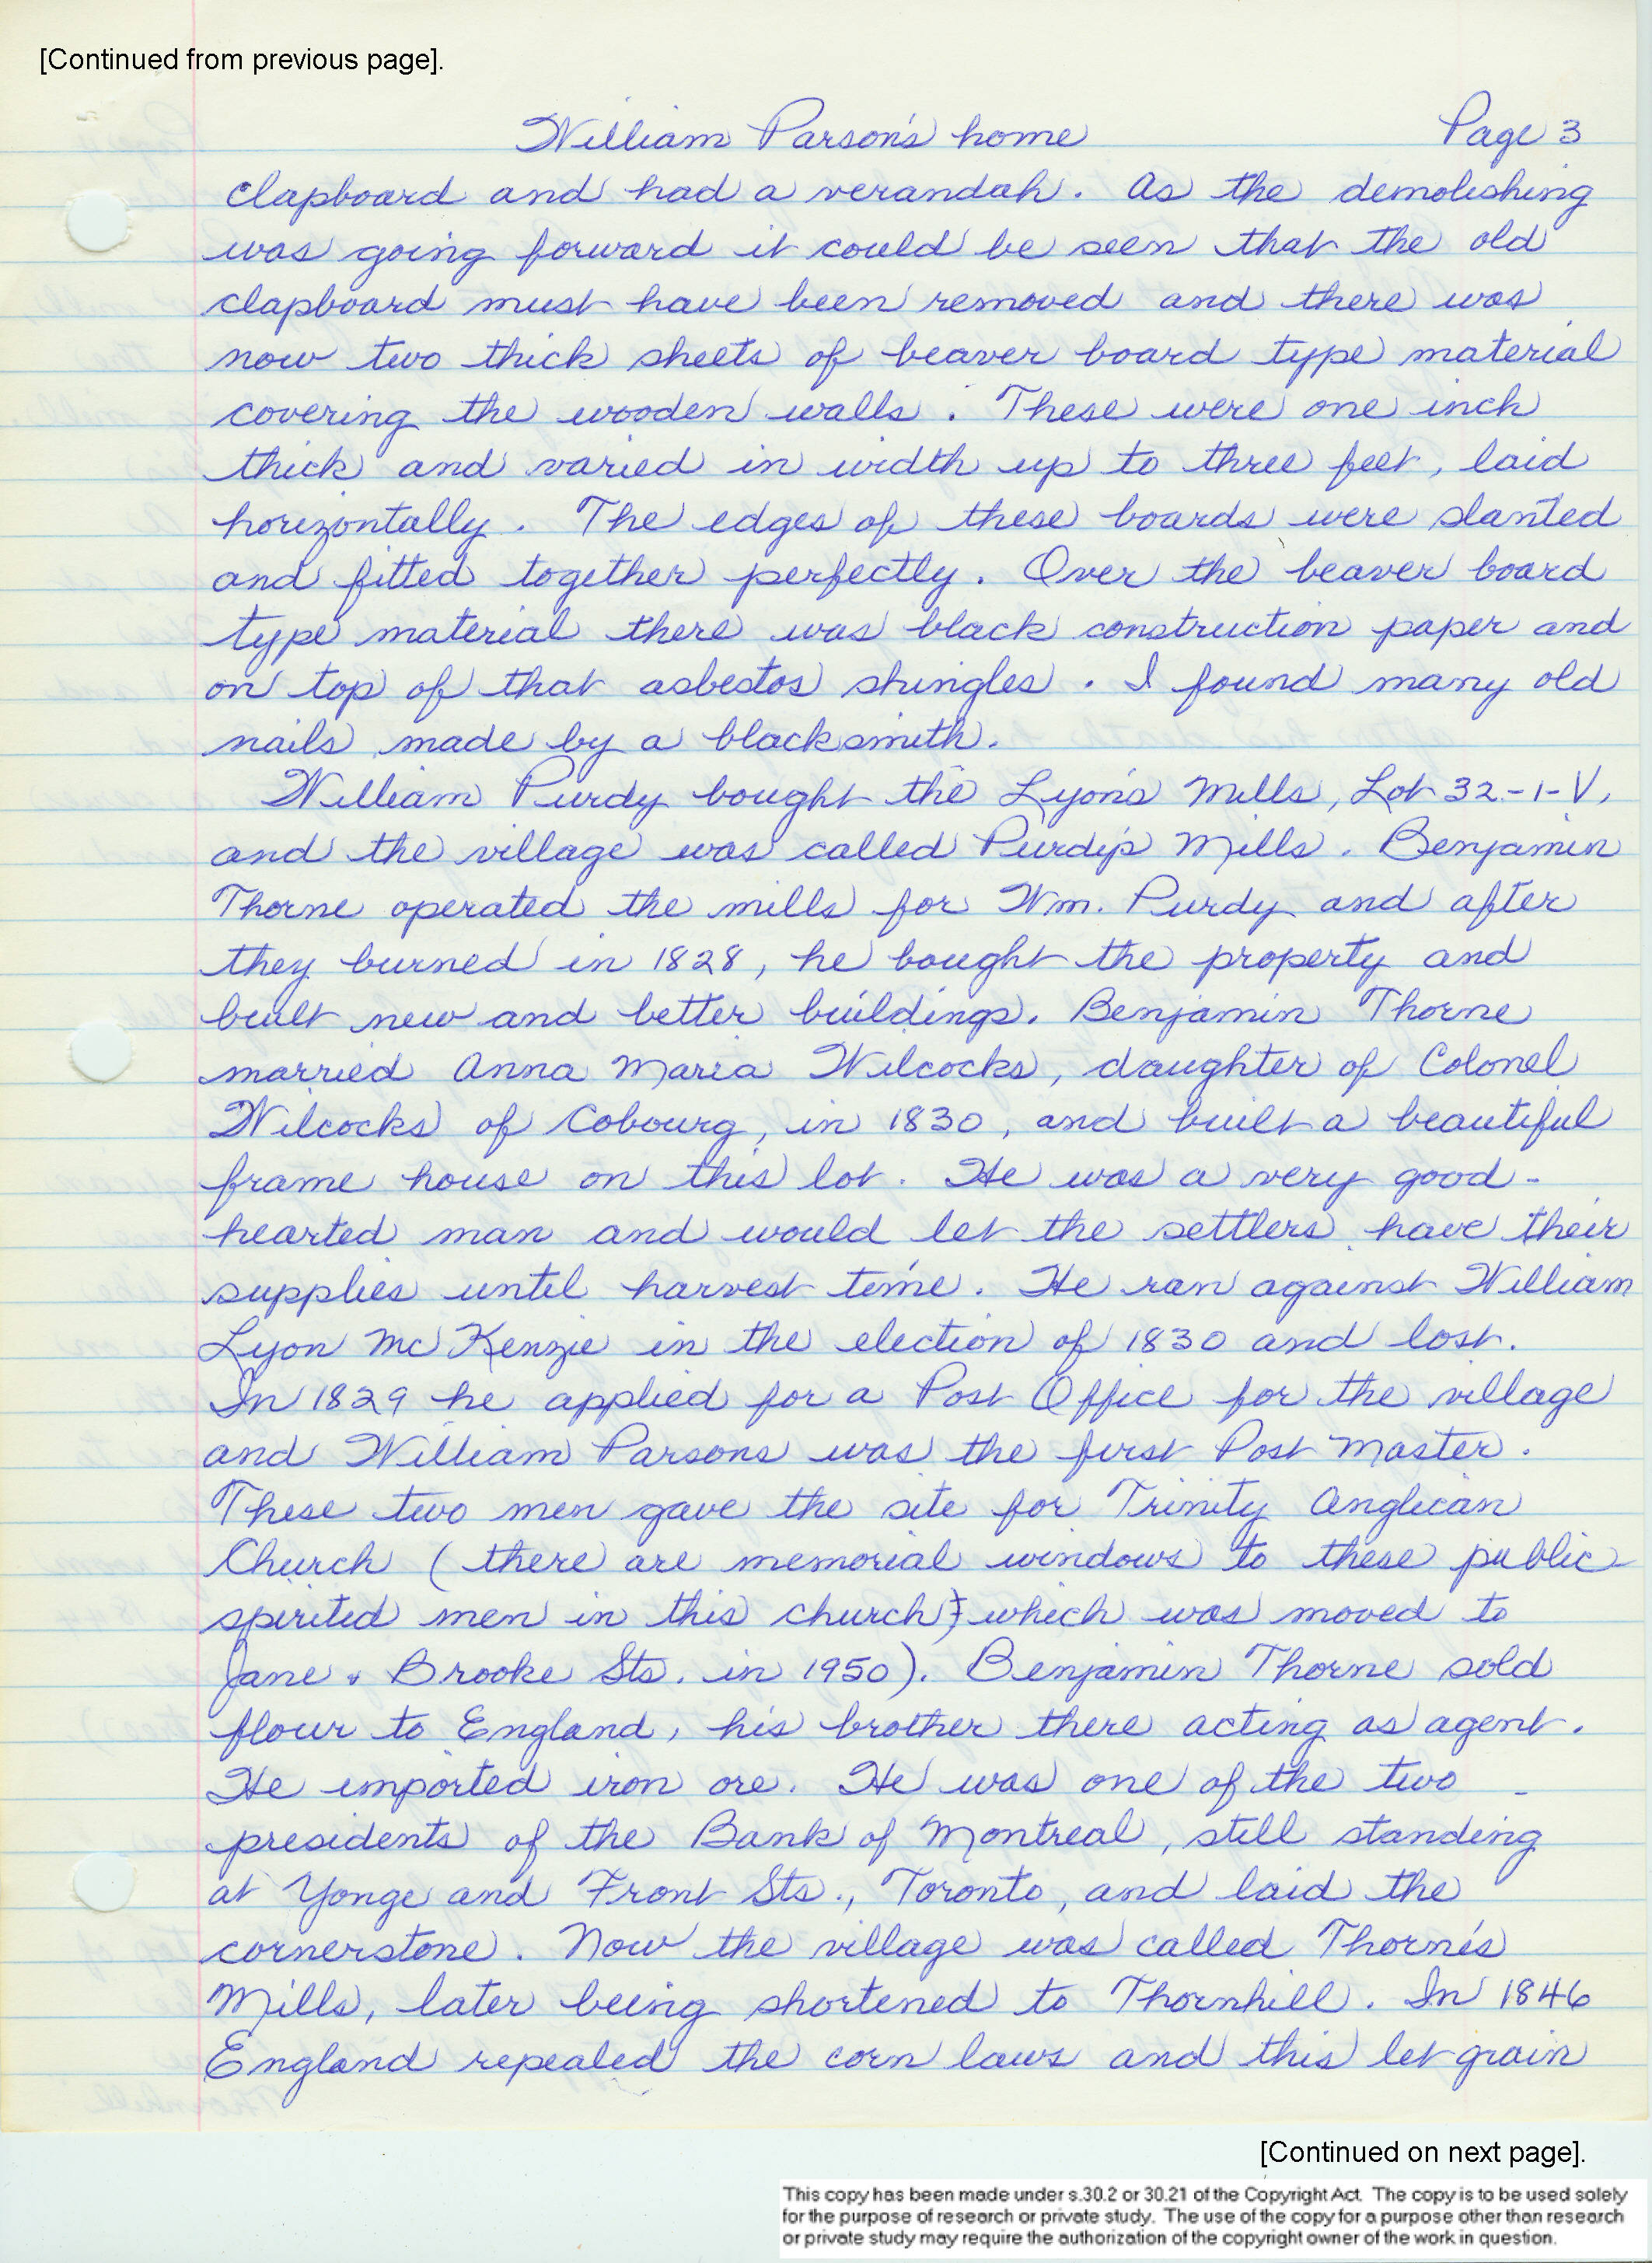 [Continued from previous page].
William Parson's home Page 3
clapboard and had a verandah. As the demolishing
was going forward it could be seen that the old
clapboard must have been removed and there was
now two thick sheets of beaver board type material
covering the wooden walls. These were one inch
thick and varied in width up to three feet, laid
horizontally. The edges of these boards were slanted
and fitted together perfectly. Over the beaver board
type material there was black construction paper and
on top of that asbestos shingles. I found many old
nails made by a blacksmith.
William Purdy bought the Lyon's Mills, Lot 32-1-V,
and the village was called Purdy's Mills. Benjamin
Thorne operated the mills for Wm. Purdy and after
they burned in 1828, he bought the property and
built new and better buildings. Benjamin Thorne
married Anna Maria Wilcocks, daughter of Colonel
Wilcocks of Cobourg, in 1830, and built a beautiful
frame house on this lot. He was a very good-
hearted man and would let the settlers have their
supplies until harvest time. He ran against William
Lyon McKenzie in the election of 1830 and lost.
In 1829 he applied for a Post Office for the village
and William Parsons was the first Post Master.
These two men gave the site for Trinity Anglican
Church (there are memorial windows to these public
spirited men in this church) which was moved to
Jane & Brooke Sts. in 1950). Benjamin Thorne sold
flour to England, his brother there acting as agent.
He imported iron ore. He was one of the two
presidents of the Bank of Montreal, still standing
at Yonge and Front Sts., Toronto, and laid the
cornerstone. Now the village was called Thorne's
Mills, later being shortened to Thornhill. In 1846
England repealed the corn laws and this let grain
[Continued on next page].
This copy has been made under s.30.2 or 30.21 of the Copyright Act. The copy is to be used solely
for the purpose of research or private study. The use of the copy for a purpose other than research
or private study may require the authorization of the copyright owner of the work in question.